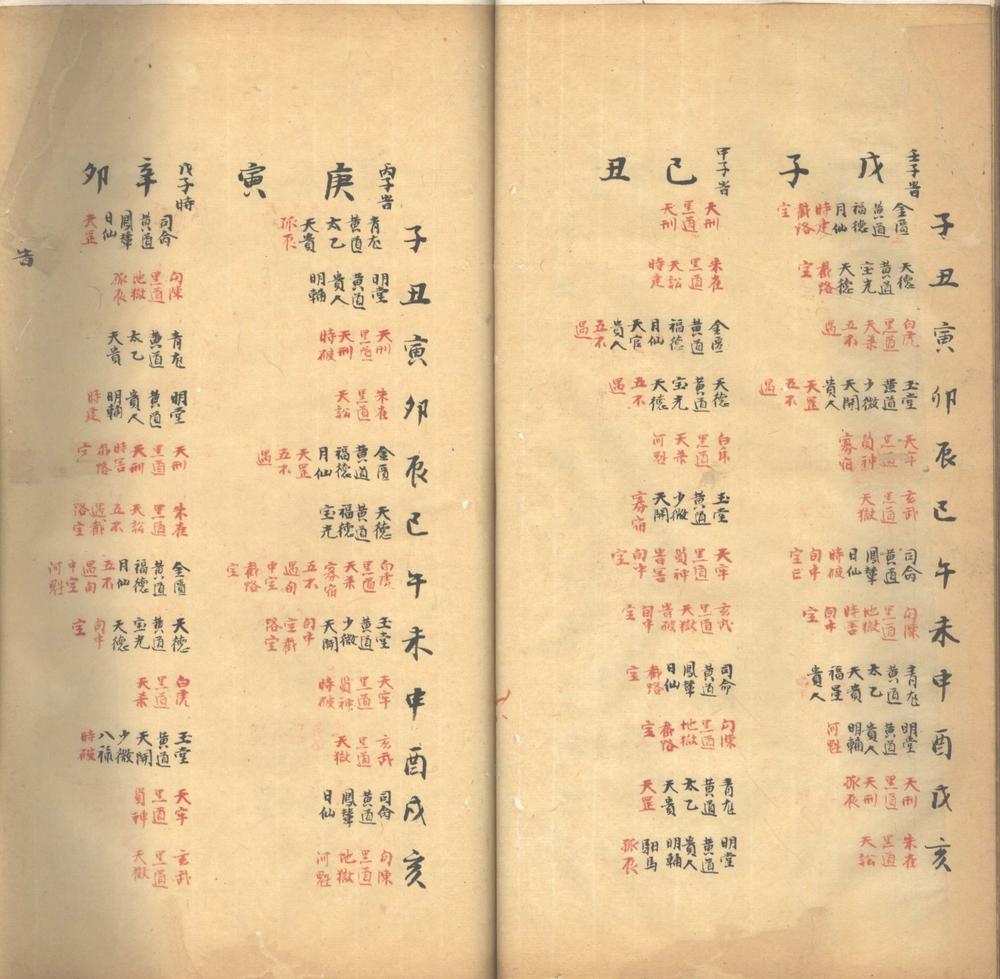 壬子旹 戊子
子 金匱 黃道 福德 月仙 時建 截路 空
丑 天德 黃道 宝光 天德 截路 空
寅 白虎 黑道 天杀 五不 遇
卯 玉堂 黃道 少微 天開 貴人 天罡 五不 遇
辰 天牢 黑道 𠃔神 寡宿
巳 玄武 黑道 天獄
午 司命 黃道 鳳輦 日仙 時破 旬中 空亡
未 勾陳 黑道 地獄 時害 旬中 空
申 青龙 黃道 太乙 天貴 福星 貴人
酉 明堂 黃道 貴人 明輔 河魁
戌 天刑 黑道 天刑 孤辰
亥 朱雀 黑道 天訟
甲子旹 己丑
天刑 黑道 天刑
朱雀 黑道 天訟 時建
金匱 黃道 福德 月仙 天官 貴人 五不 遇
天德 黃道 宝光 天德 五不 遇
白虎 黑道 天杀 河魁
玉堂 黃道 少微 天開 寡宿
天牢 黑道 旹害 旬中 空
玄武 黑道 天獄 旹破 旬中 空
司命 黃道 鳳輦 日仙 截路 空
勾陳 黑道 地獄 截路 空
青龙 黃道 太乙 天貴 天罡
明堂 黃道 貴人 明輔 馹馬 孤辰
丙子旹 庚寅
子 青龙 黃道 太乙 天貴 孤辰
丑 明堂 黃道 貴人 明輔
寅 天刑 黑道 天刑 時破
卯 朱雀 黑道 天訟
辰 金匱 黃道 福德 月仙 天罡 五不 遇
巳 天德 黃道 福德 宝光
午 白虎 黑道 天杀 寡宿 五不 遇旬 中空 截路 空
未 玉堂 黃道 少微 天開 旬中 空截 路空
申 天牢 黑道 時破
酉 玄武 黑道 天獄
戌 司命 黃道 鳳輦 日仙
亥 勾陳 黑道 地獄 河魁
戊子時 辛卯
司命 黃道 鳳輦 日仙 天罡
勾陳 黑道 地獄 孤辰
青龙 黃道 太乙 天貴
明堂 黃道 貴人 明輔 時建
天刑 黑道 天刑 時害 截路 空
朱雀 黑道 天訟 五不 遇截 路空
金匱 黃道 福德 月仙 五不 遇旬 中空 河魁
天德 黃道 宝光 天德 旬中 空
白虎 黑道 天杀
玉堂 黃道 天開 少微 八祿 時破
天牢 黑道
玄武 黑道 天獄
旹